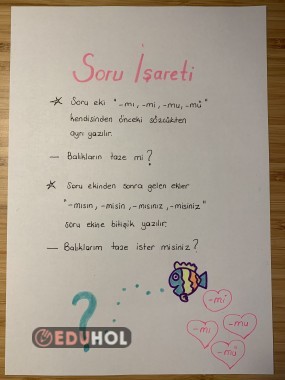 Soru İşareti
* Soru eki "-mı, -mi, -mu, -mü"
kendisinden önceki sözcükten
ayrı yazılır.
— Balıkların taze mi?
* Soru ekinden sonra gelen ekler
"-mısın, -misin, -mısınız, -misiniz"
soru ekine bitişik yazılır.
— Balıklarım taze ister misiniz?
?
-mi
-mı
-mu
-mü
EDUHOL